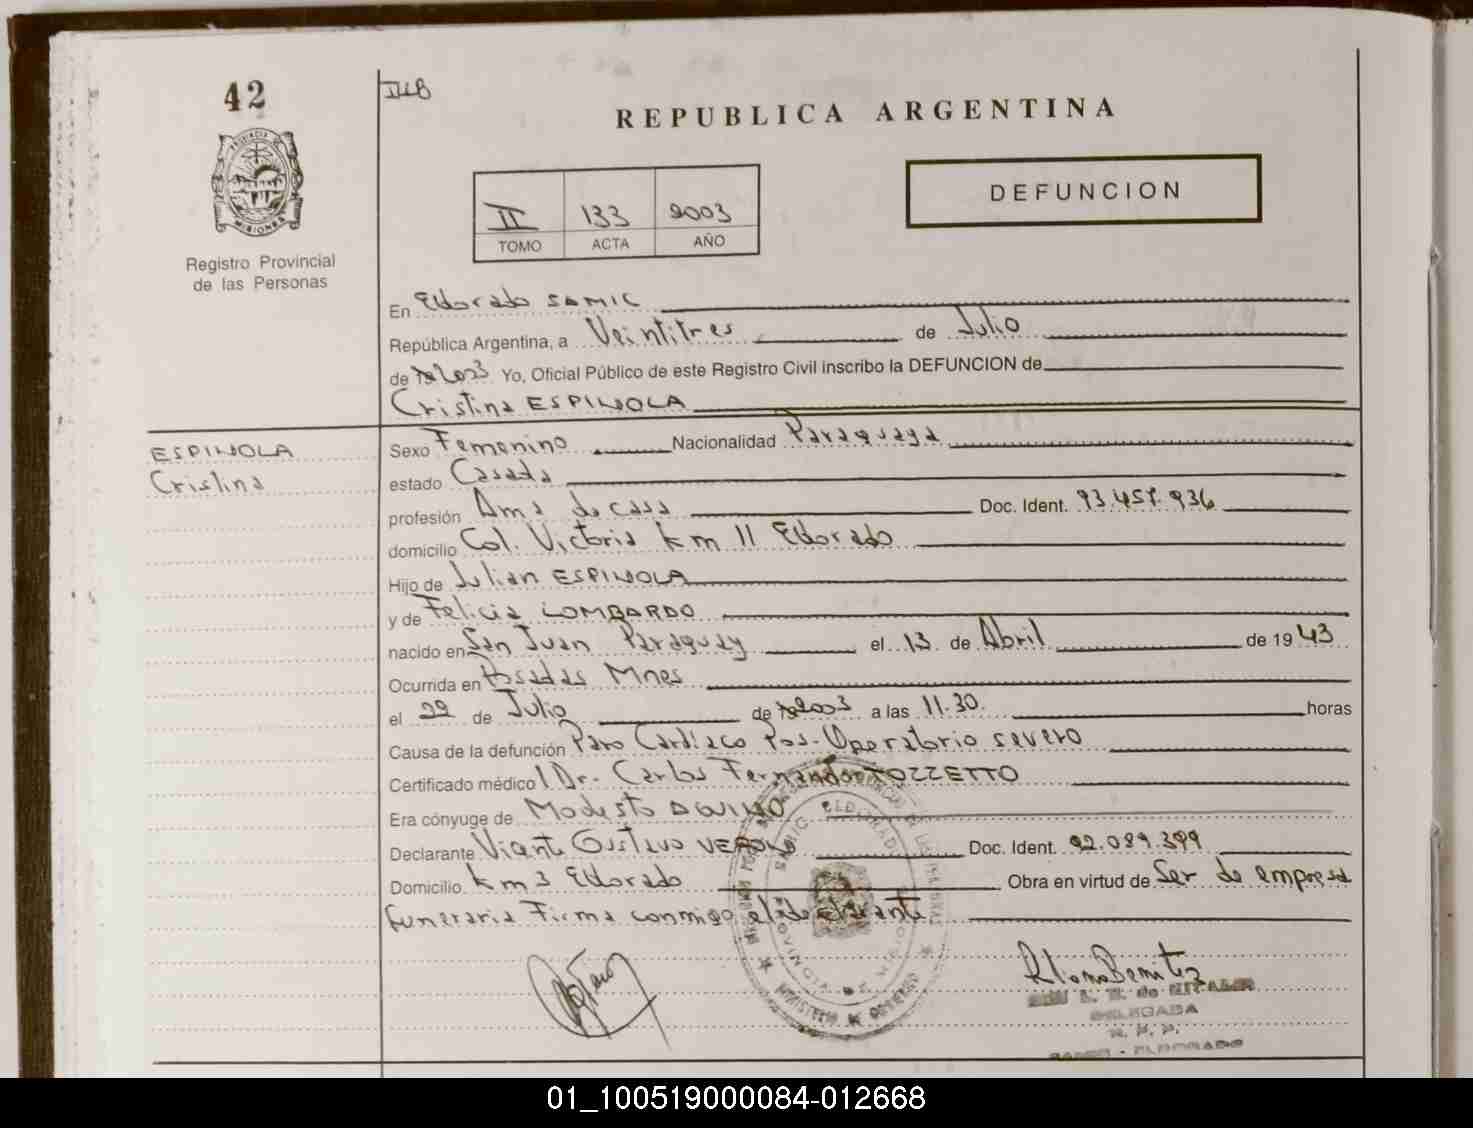 42
REPUBLICA ARGENTINA
PROVINCIA DE
MISIONES
Registro Provincial
de las Personas
II 133 2003
TOMO ACTA AÑO
DEFUNCION
En Eldorado SAMIC
República Argentina, a Veintitres de Julio
de 2003 Yo, Oficial Público de este Registro Civil inscribo la DEFUNCION de
Cristina ESPINOLA
ESPINOLA
Cristina
Sexo Femenino Nacionalidad Paraguaya
estado Casada
profesión Ama de casa Doc. Ident. 93.457.936
domicilio Col. Victoria km 11 Eldorado
Hijo de Julian ESPINOLA
y de Felicia LOMBARDO
nacido en San Juan Paraguay el 13 de Abril de 1943
Ocurrida en Posadas Mnes
el 22 de Julio de 2003 a las 11.30. horas
Causa de la defunción Paro Cardiaco Pos-Operatorio severo
Certificado médico Dr. Carlos Fernando TOZZETTO
Era cónyuge de Modesto AQUINO
Declarante Vicente Gustavo Doc. Ident. 92.089.399
Domicilio km 3 Eldorado Obra en virtud de Ser de empresa
funeraria Firma conmigo el declarante
SAMIC ELDORADO
MINISTERIO DE GOBIERNO
Benitez
DELEGADA
R. P. P.
SAMIC - ELDORADO
01_100519000084-012668